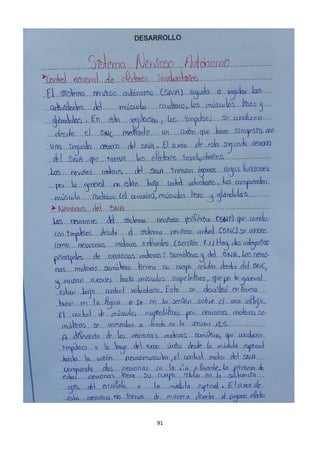 DESARROLLO
Sistema Nervioso Autónomo
Control neuronal de efectores involuntarios
El sistema nervioso autónomo (SNA) ayuda a regular las
actividades del músculo cardiaco, los músculos lisos y
glándulas. En esta regulación, los impulsos se conducen
desde el SNC mediante un axón que hace sinapsis con
una segunda neurona del SNA. El axón de esta segunda neurona
del SNA que inerva los efectores involuntarios.
Las neuronas motoras del SNA inervan órganos cuyas funciones
por lo general no están bajo control voluntario. Ho comprenden
músculo cardiaco (el corazón), músculos lisos y glándulas.
Neuronas del SNA
Las neuronas del sistema nervioso periférico (SNP) que condu-
cen impulsos desde el sistema nervioso central (SNC) se conocen
como neuronas motoras, o eferentes (sección 7.1) Hay dos categorías
principales de neuronas motoras: somáticas y del SNA. Las neuro-
nas motoras somáticas tienen su cuerpo celular dentro del SNC,
y envían axones hacia músculos esqueléticos, que por lo general
están bajo control voluntario. Esto se describió en forma
breve en la figura en la sección sobre el arco reflejo.
El control de músculos esqueléticos por neuronas motoras so-
máticas se comentan a fondo en la sección 12.5.
A diferencia de las neuronas motoras somáticas, que conducen
impulsos a lo largo del axón único desde la médula espinal
hasta la unión neuromuscular, el control motor del SNA
comprende dos neuronas en la vía eferente. La primera de
estas neuronas tiene su cuerpo celular en la sustancia
gris del encéfalo o la médula espinal. El axón de
esta neurona no inerva de manera directa el órgano efector
91